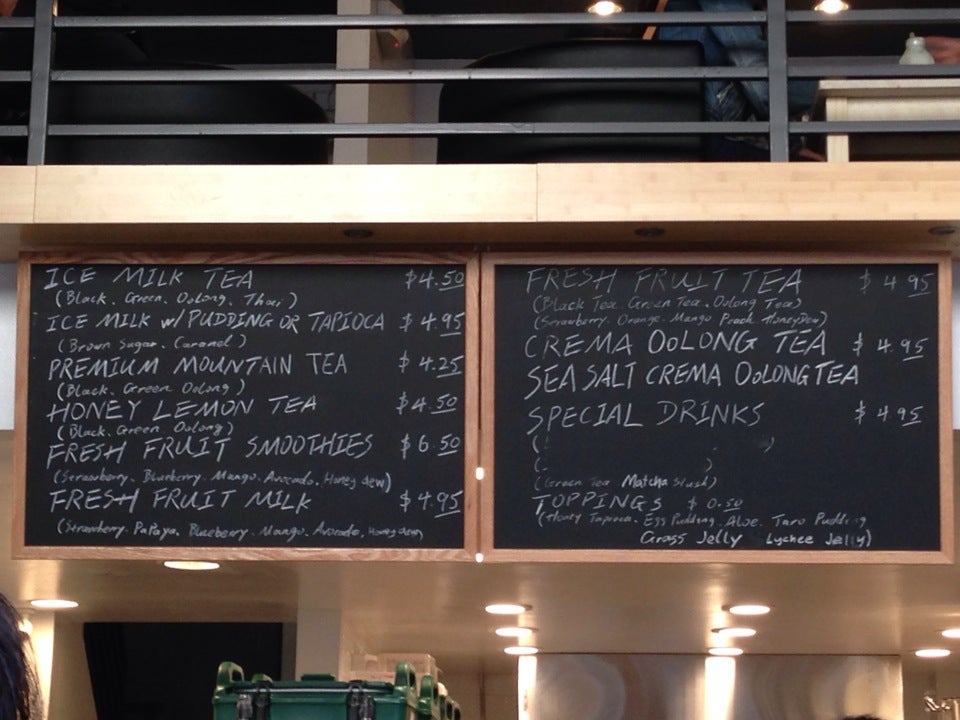 ICE MILK TEA $4.50
(Black. Green. Oolong. Thai)
ICE MILK w/ PUDDING OR TAPIOCA $4.95
(Brown Sugar. Caramel)
PREMIUM MOUNTAIN TEA $4.25
(Black. Green. Oolong)
HONEY LEMON TEA $4.50
(Black. Green. Oolong)
FRESH FRUIT SMOOTHIES $6.50
(Strawberry. Blueberry. Mango. Avocado. Honey dew)
FRESH FRUIT MILK $4.95
(Strawberry. Papaya. Blueberry. Mango. Avocado. Honeydew)
FRESH FRUIT TEA $4.95
(Black Tea. Green Tea. Oolong Tea)
(Strawberry. Orange. Mango Peach. Honeydew)
CREMA OOLONG TEA $4.95
SEA SALT CREMA OOLONG TEA
SPECIAL DRINKS $4.95
( )
( )
(Green Tea Matcha slush)
TOPPINGS $0.50
(Honey Tapioca. Egg Pudding. Aloe. Taro Pudding
Grass Jelly Lychee Jelly)